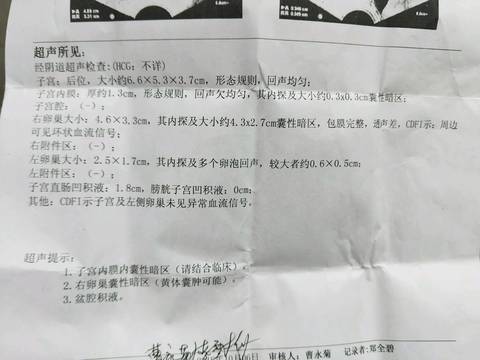 超声所见:
经阴道超声检查:(HCG: 不详)
子宫: 后位, 大小约6.6×5.3×3.7cm, 形态规则, 回声均匀;
子宫内膜: 厚约1.3cm, 形态规则, 回声欠均匀, 其内探及大小约0.3x0.3cm囊性暗区;
子宫腔: (-);
右卵巢大小: 4.6×3.3cm, 其内探及大小约4.3x2.7cm囊性暗区, 包膜完整, 透声差, CDFI示: 周边
可见环状血流信号;
右附件区: (-);
左卵巢大小: 2.5×1.7cm, 其内探及多个卵泡回声, 较大者约0.6×0.5cm;
左附件区: (-);
子宫直肠凹积液: 1.8cm, 膀胱子宫凹积液: 0cm;
其他: CDFI示子宫及左侧卵巢未见异常血流信号。
超声提示:
1. 子宫内膜内囊性暗区 (请结合临床)。
2. 右卵巢囊性暗区 (黄体囊肿可能)。
3. 盆腔积液。
审核人: 曹永菊 记录者: 郑全碧